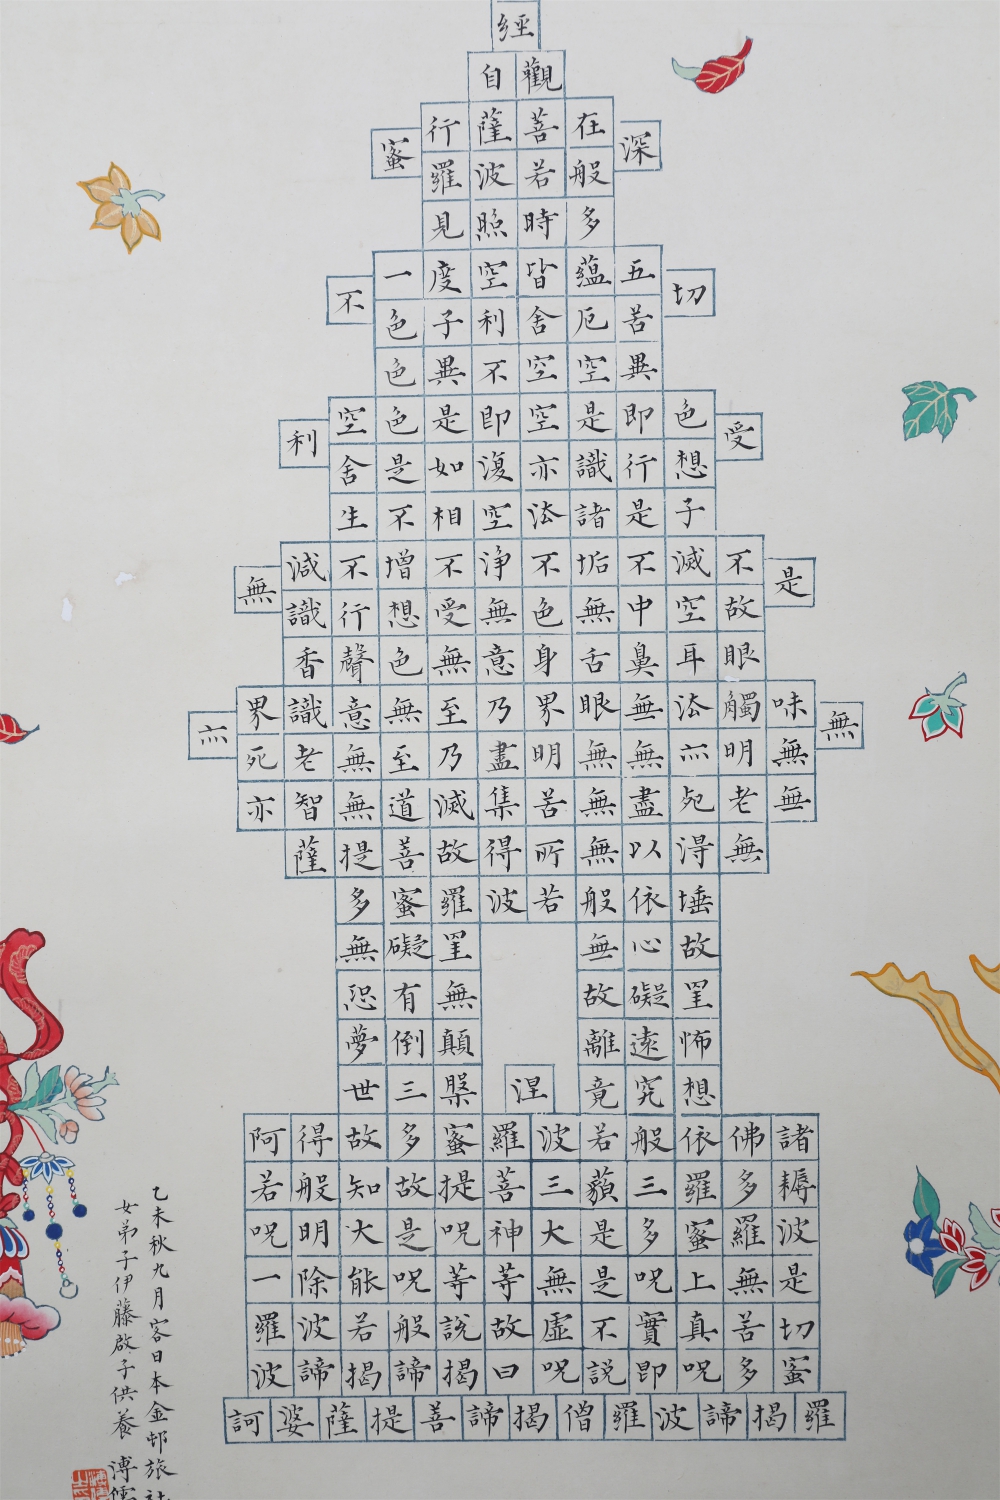 經
觀自
在菩薩行
深
般若波羅
蜜
多時照見
五蘊皆空度一
切
苦厄舍利子色
不
異空空不異色
色即是空空即是色空
受
想行識亦復如是舍
利
子是諸法空相不生
不滅不垢不淨不增不減
是
故空中無色無受想行識
無
眼耳鼻舌身意無色聲香
味觸法無眼界乃至無意識界
無
無明亦無無明盡乃至無老死
亦
無老死盡無苦集滅道無智亦
無得以無所得故菩提薩
埵依般若波羅蜜多
故心無罣礙無
罣礙故無有恐
怖遠離顛倒夢
想究竟涅槃三世
諸佛依般若波羅蜜多故得阿
耨多羅三藐三菩提故知般若
波羅蜜多是大神咒是大明咒
是無上咒是無等等咒能除一
切苦真實不虛故說般若波羅
蜜多咒即說咒曰揭諦揭諦波
羅揭諦波羅僧揭諦菩提薩婆訶
乙未秋九月客日本金邨旅社
女弟子伊藤啟子供養 溥儒